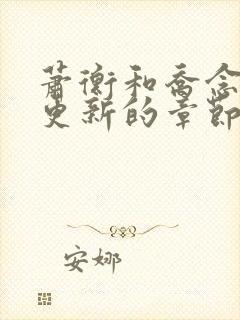 萧衡和乔念
更新的章節
安娜